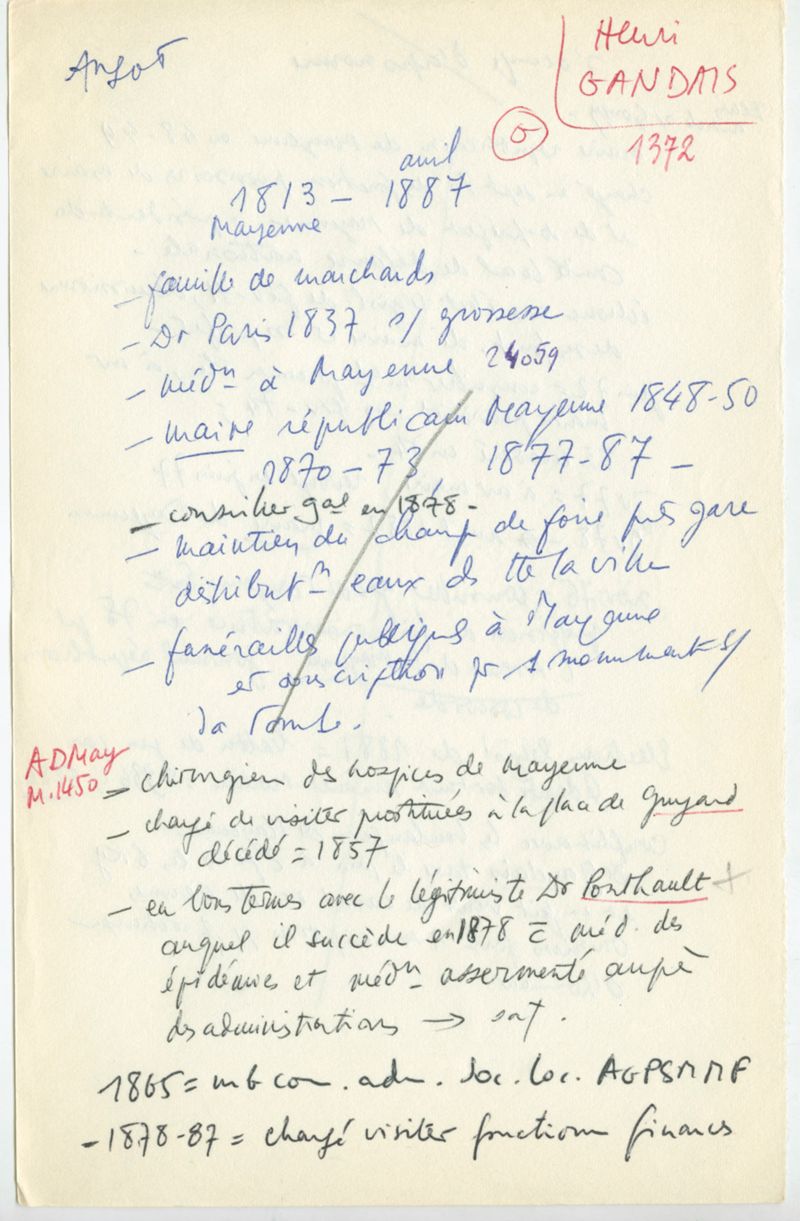 Angot
Henri
GANDAIS
1372
avril
1813 – 1887
Mayenne
– famille de marchands
– Dr Paris 1837 s/ grossesse
– médn à Mayenne 24059
– maire républicain Mayenne 1848-50
1870 – 73, 1877-87 –
– conseiller gal en 1878 -
– maintien du champ de foire près gare
distributn eaux ds tte la ville
– funérailles publiques à Mayenne
et souscription pr 1 monument s/
sa tombe.
ADMay
M.1450
= chirurgien des hospices de Mayenne
– chargé de visiter prostituées à la place de Guyard
décédé = 1857
– en bons termes avec le légitimiste Dr Ponthault +
auquel il succède en 1878 = méd. des
épidémies et médn assermenté auprès
des administrations → sat.
1865 = mb com. adm. soc. loc. AGPSMMF
- 1878-87 = chargé visiter fonctionn finances